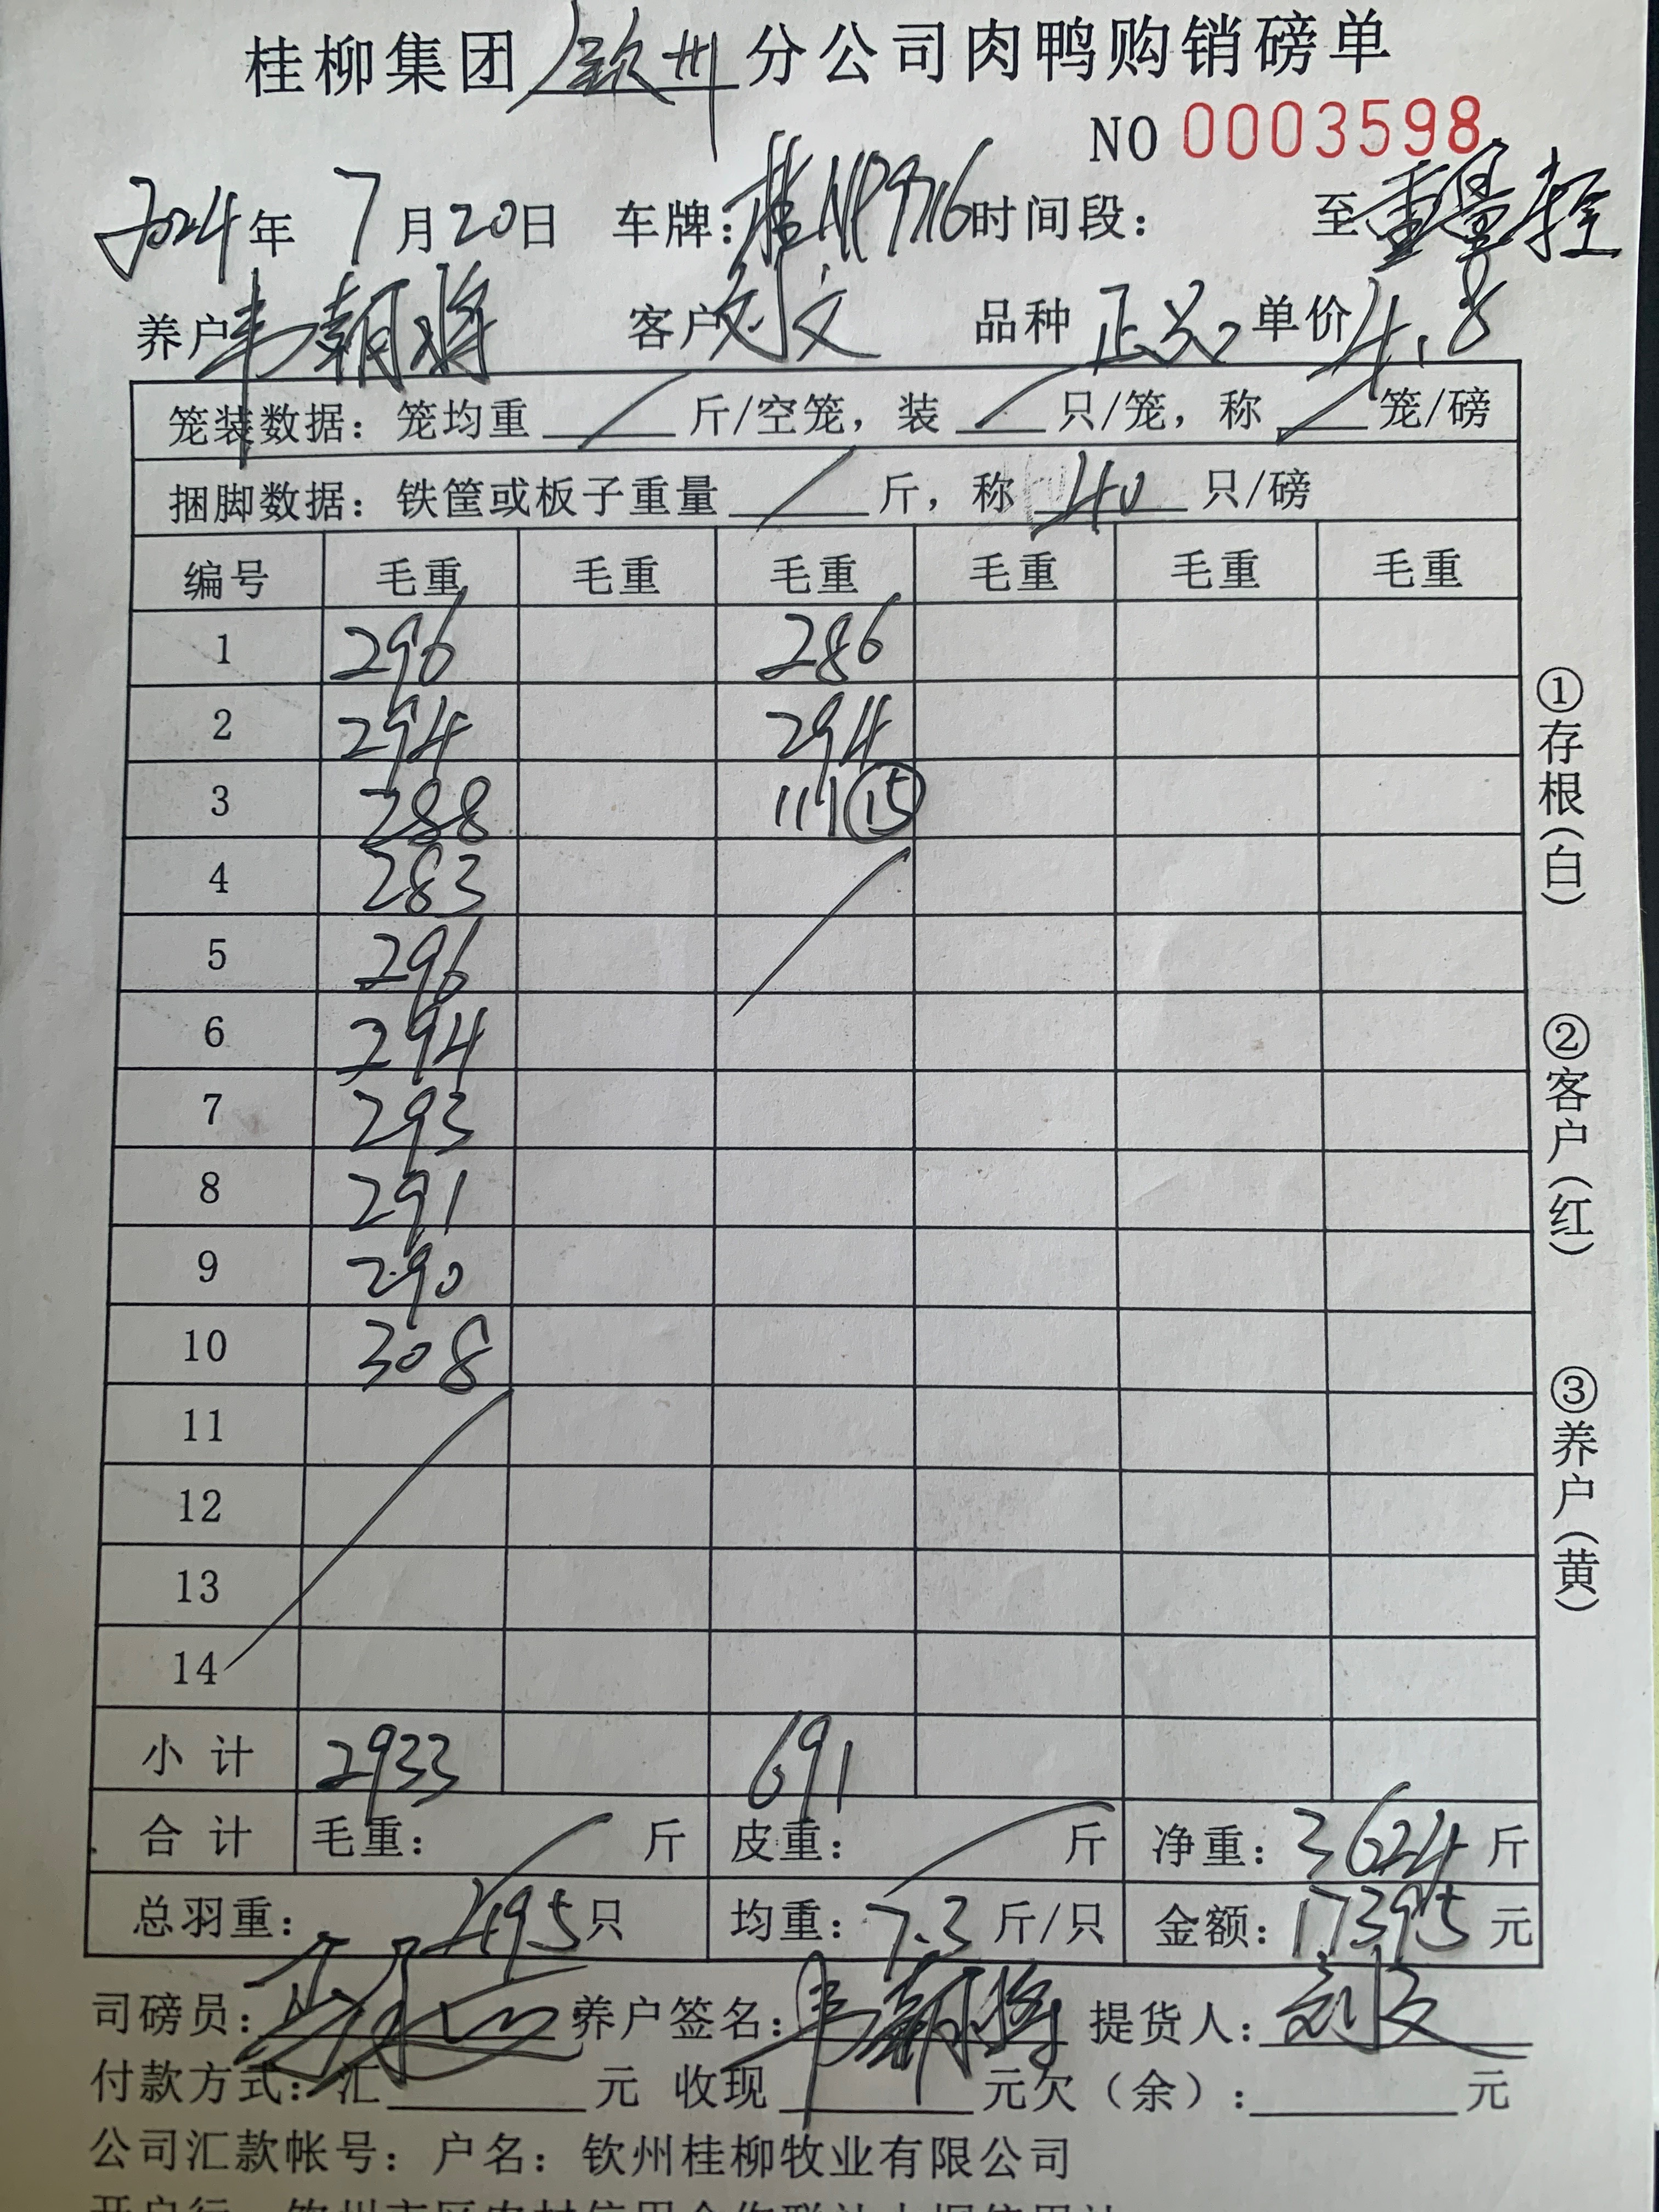 桂柳集团 钦州 分公司肉鸭购销磅单
NO 0003598
2024年 7月20日 车牌:桂NP9716 时间段: 至 重量轻
养户 韦朝将 客户 刘文 品种 正义 单价 4.8
笼装数据:笼均重 / 斤/空笼,装 / 只/笼,称 / 笼/磅
捆脚数据:铁筐或板子重量 / 斤,称 40 只/磅
编号 毛重 毛重 毛重 毛重 毛重 毛重
1 296 286
2 294 294
3 288 111 ⑮
4 283
5 296
6 294
7 293
8 291
9 290
10 308
11
12
13
14
小计 2933 691
合计 毛重: 斤 皮重: 斤 净重:3624斤
总羽重:495只 均重:7.3斤/只 金额:17395元
司磅员: 养户签名:韦朝将 提货人:刘文
付款方式:汇 元 收现 元欠(余): 元
公司汇款帐号:户名:钦州桂柳牧业有限公司
①存根(白)
②客户(红)
③养户(黄)